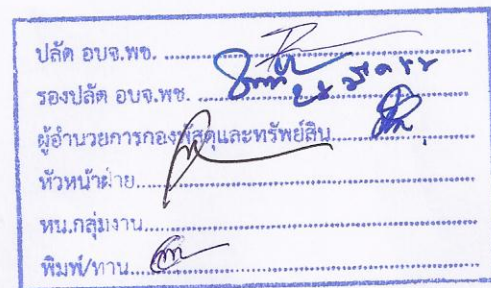 ปลัด อบจ.พช. ........................................
รองปลัด อบจ.พช. ........................................
ผู้อำนวยการกองพัสดุและทรัพย์สิน....................
หัวหน้าฝ่าย........................................
หน.กลุ่มงาน........................................
พิมพ์/ทาน........................................